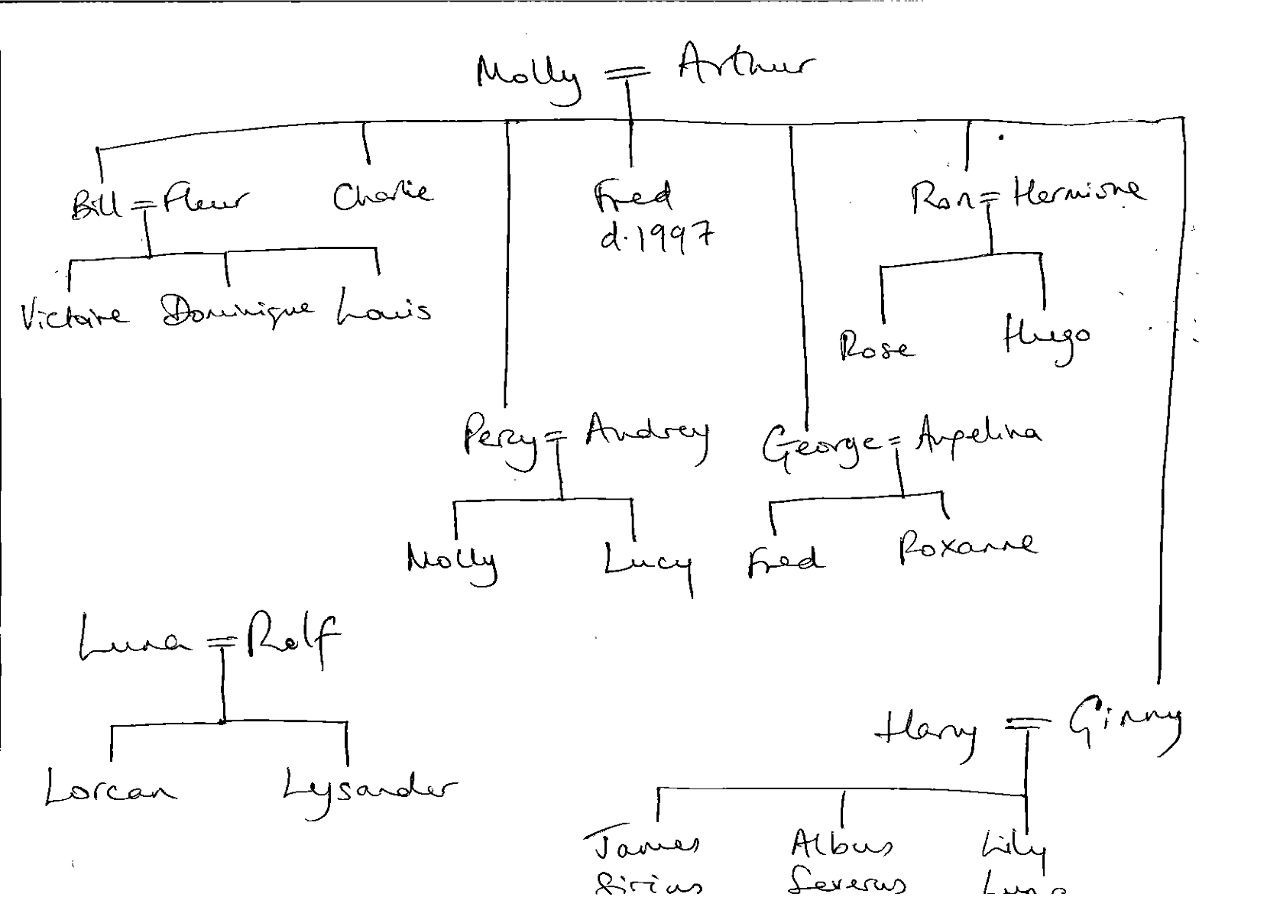 Molly = Arthur
Bill = Fleur
Charlie
Fred
d. 1997
Ron = Hermione
Victoire Dominique Louis
Rose
Hugo
Percy = Audrey
George = Angelina
Molly
Lucy
Fred
Roxanne
Luna = Rolf
Lorcan
Lysander
Harry = Ginny
James
Sirius
Albus
Severus
Lily
Luna